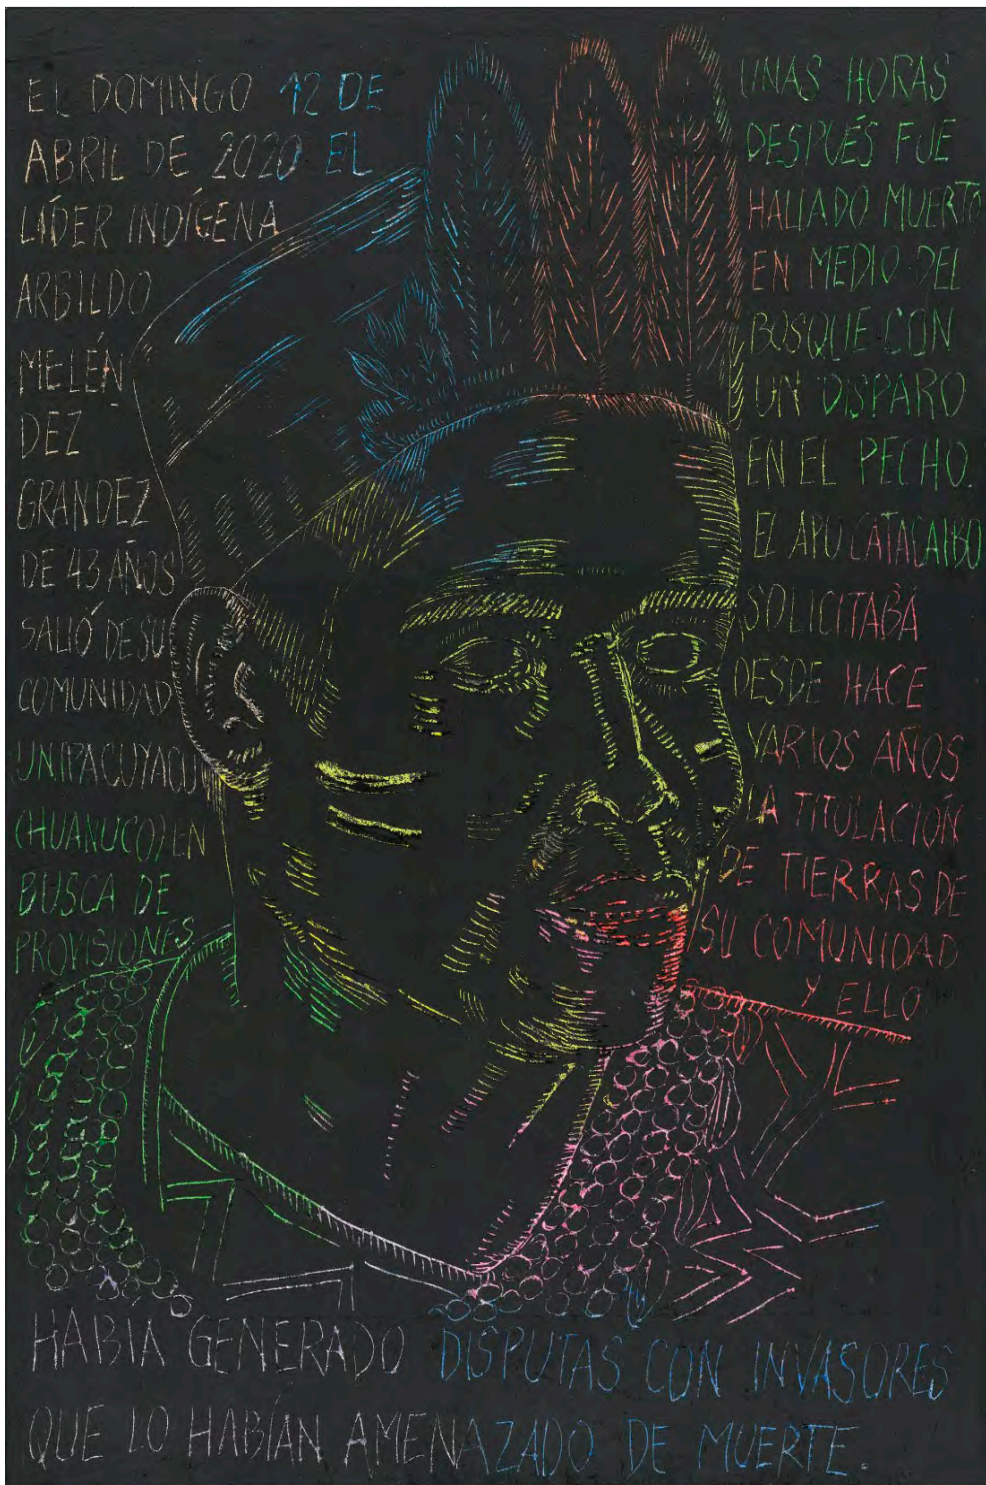 EL DOMINGO 12 DE
ABRIL DE 2020 EL
LÍDER INDÍGENA
ARBILDO
MELÉN
DEZ
GRANDEZ
DE 43 AÑOS
SALIÓ DE SU
COMUNIDAD
UNIPACUYACU
(HUANUCO) EN
BUSCA DE
PROVISIONES
UNAS HORAS
DESPUÉS FUE
HALLADO MUERTO
EN MEDIO DEL
BOSQUE CON
UN DISPARO
EN EL PECHO.
EL APU CATACAIBO
SOLICITABA
DESDE HACE
VARIOS AÑOS
LA TITULACIÓN
DE TIERRAS DE
SU COMUNIDAD
Y ELLO
HABÍA GENERADO DISPUTAS CON INVASORES
QUE LO HABÍAN AMENAZADO DE MUERTE.